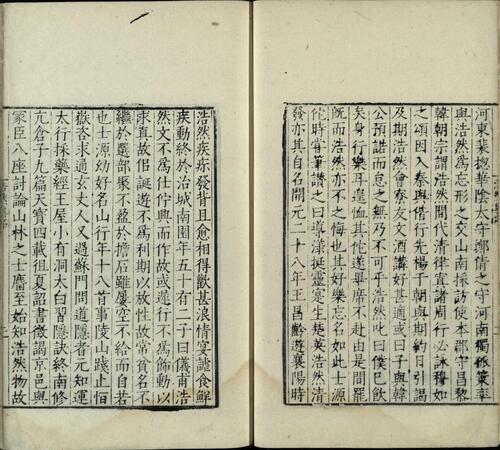 河東裴揔華陰太守鄭倩之守河南獨孤策率
與浩然爲忘形之交山南採訪使本郡守昌黎
韓朝宗謂浩然間代清律寘諸周行必詠穆如
之頌因入秦與偕行先楊于朝與期約日引謁
及期浩然會寮友文酒講好甚適或曰子與韓
公預諾而怠之無乃不可乎浩然叱曰僕已飮
矣身行樂耳遑恤其佗遂畢席不赴由是間罷
旣而浩然亦不之悔也其好樂忘名如此士源
佗時嘗筆讃之曰導漾挺靈寔生楚英浩然清
發亦其自名開元二十八年王昌齡遊襄陽時
浩然疾疹發背且愈相得歡甚浪情宴謔食鮮
疾動終於治城南園年五十有二子曰儀甫浩
然文不爲仕佇興而作故或遲行不爲飾動以
求真故佀誕遊不爲利期以放性故常貧名不
繼於選部聚不盈於擔石雖屢空不給而自若
也士源幼好名山行年十八首事陵山踐止恒
嶽咨求通玄丈人又過蘇門問道隱者元知運
太行採藥經王屋小有洞太白習隱訣終南修
亢倉子九篇天寶四載徂夏詔書徵謁京邑與
冢臣八座討論山林之士麕至始知浩然物故